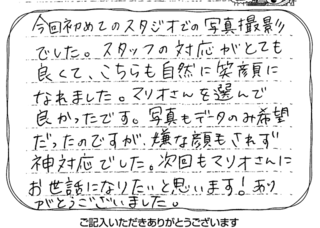 今回初めてのスタジオでの写真撮影
でした。スタッフの対応がとても
良くて、こちらも自然に笑顔に
なれました。マリオさんを選んで
良かったです。写真もデータのみ希望
だったのですが、嫌な顔もされず
神対応でした。次回もマリオさんに
お世話になりたいと思います!あり
がとうございました。
ご記入いただきありがとうございます